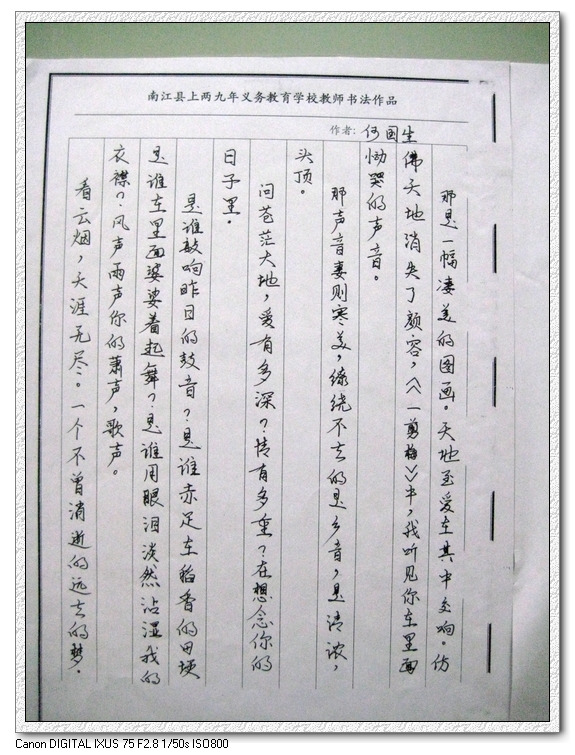 南江县上两九年义务教育学校教师书法作品
作者：何国生
那是一幅凄美的图画。天地至爱在其中交响。仿
佛天地消失了颜容，《一剪梅》中，我听见你在里面
恸哭的声音。
那声音凄则寒美，缭绕不去的是乡音，是清浓，
头顶。
问苍茫大地，爱有多深？情有多重？在想念你的
日子里。
是谁敲响昨日的鼓音？是谁赤足在稻香的田埂
是谁在里面婆娑着起舞？是谁用眼泪淡然沾湿我的
衣襟？风声雨声你的萧声，歌声。
看云烟，天涯无尽。一个不曾消逝的远去的梦。
Canon DIGITAL IXUS 75 F2.8 1/50s ISO800